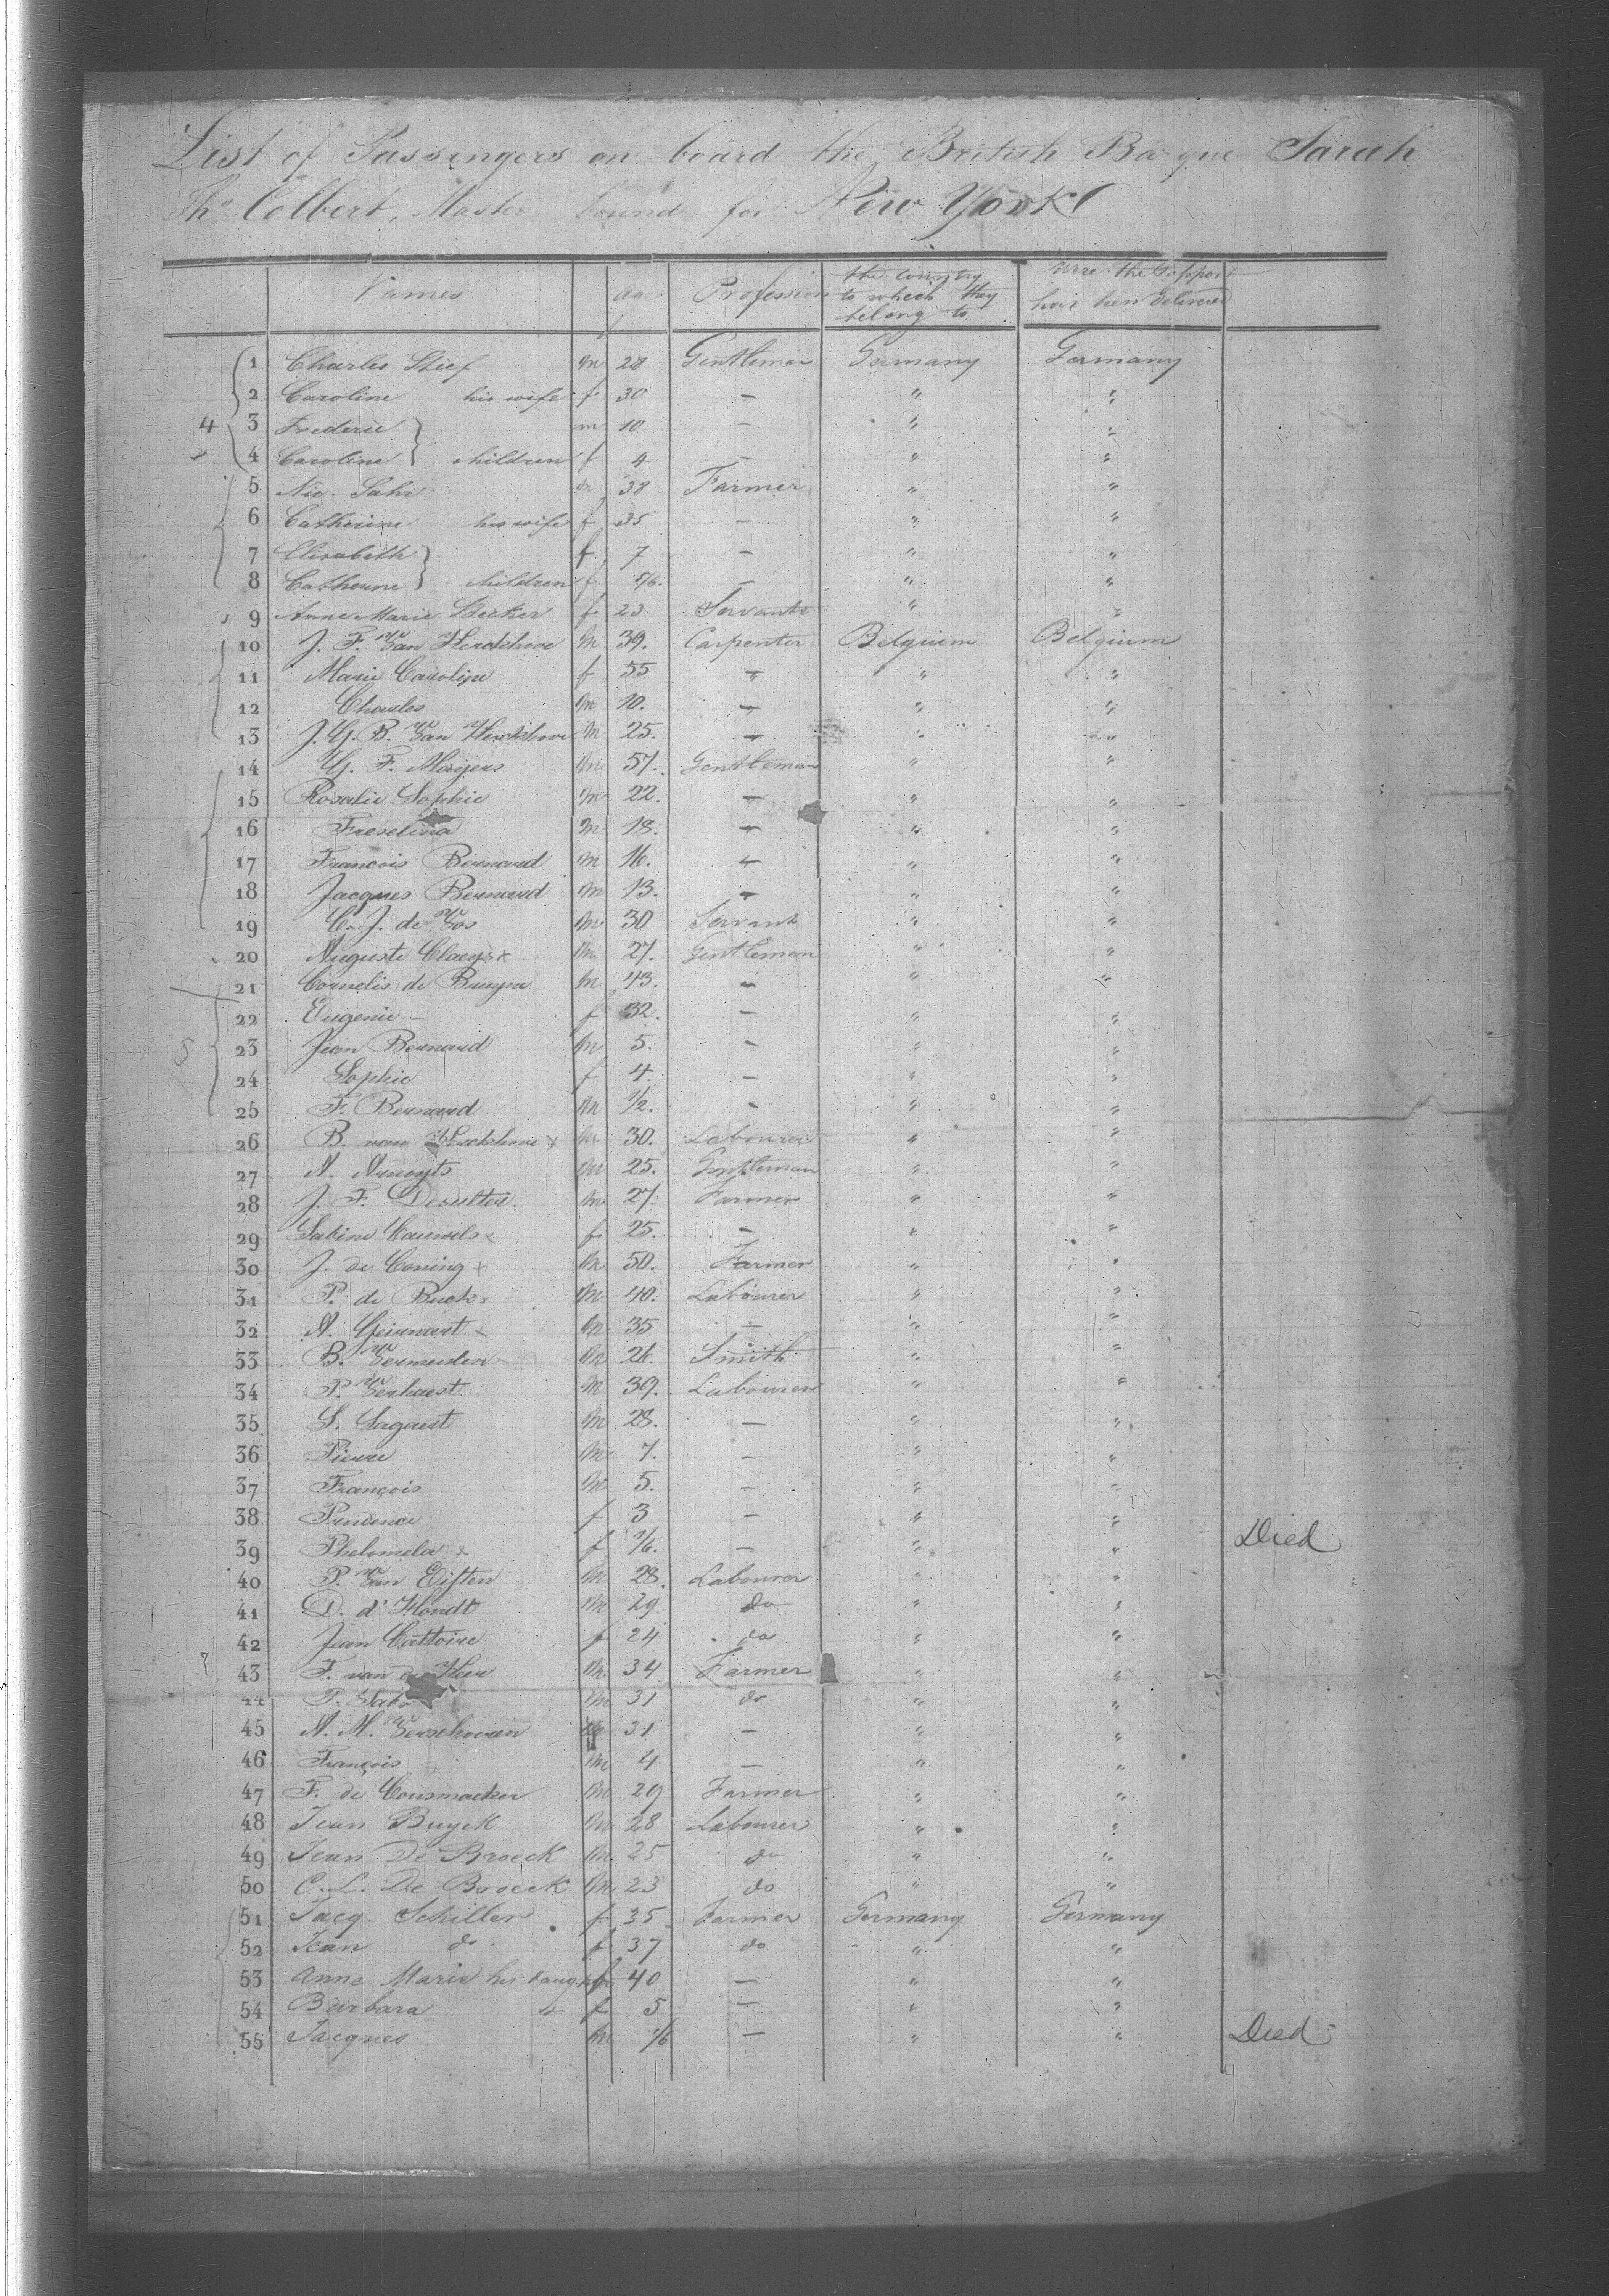 List of Passengers on board the British Barque Sarah
Ths Colbert, Master bound for New York
Names age Profession the country to which they belong to have been delivered
1 Charles Stief m 28 Gentleman Germany Germany
2 Caroline his wife f 30 — " "
4 3 Frederic m 10 — " "
4 Caroline } children f 4 — " "
5 Nic. Sahr m 38 Farmer " "
6 Catherine his wife f 35 — " "
7 Elisabeth f 7 — " "
8 Catherine } children f — " "
9 Anne Marie Becker f 23 Servante " "
10 J. F. Van Herckhove m 39. Carpenter Belgium Belgium
11 Marie Caroline f 35 " " "
12 Charles m 10. — " "
13 J. G. B. Van Herckhove m 25. — " "
14 G. F. Meijers m 57. Gentleman " "
15 Rosalie Sophie m 22. — " "
16 m 18. — " "
17 François Bernard m 16. — " "
18 Jacques Bernard m 13. — " "
19 C. J. de Vos m 30 Servant " "
20 Auguste Claeys x m 27. Gentleman " "
21 Cornelis de m 43. — " "
22 Eugenie — f 32. — " "
5 23 Jean Bernard m 5. — " "
24 Sophie f 4. — " "
25 F. Bernard m 1/2. — " "
26 B. van Herckhove x m 30. Labourer " "
27 A. Arnoyts m 25. Gentleman " "
28 J. F. m 27. Farmer " "
29 Sabine Cauwels x f 25. — " "
30 J. de Coning x m 50. Farmer " "
31 P. de Buck x m 40. Labourer " "
32 A. Geirnaert x m 35 — " "
33 B. Vermeulen m 26. Smith " "
34 P. Verhaest. m 39. Labourer " "
35 S. Sagaert m 28. — " "
36 Pierre m 7. — " "
37 François m 5. — " "
38 Prudence f 3 — " "
39 Philomela x f — " " Died
40 P. Van Eiften m 28. Labourer " "
41 D. d'Hondt m 29 do " "
42 Jean Cattoire f 24 do " "
43 F. van Heer m. 34 Farmer " "
44 P. m 31 do " "
45 A. M. Verschouen 31 — " "
46 François m 4 — " "
47 F. de Cousmacker m 29 Farmer " "
48 Jean Buyck m 28 Labourer " "
49 Jean De Broeck m 25 do " "
50 C. L. De Broeck m 23 do " "
51 Jacq. Schiller f 35 Farmer Germany Germany
52 Jean do f 37 do " "
53 Anne Marie his f 40 — " "
54 Barbara f 5 — " "
55 Jacques m — " " Died